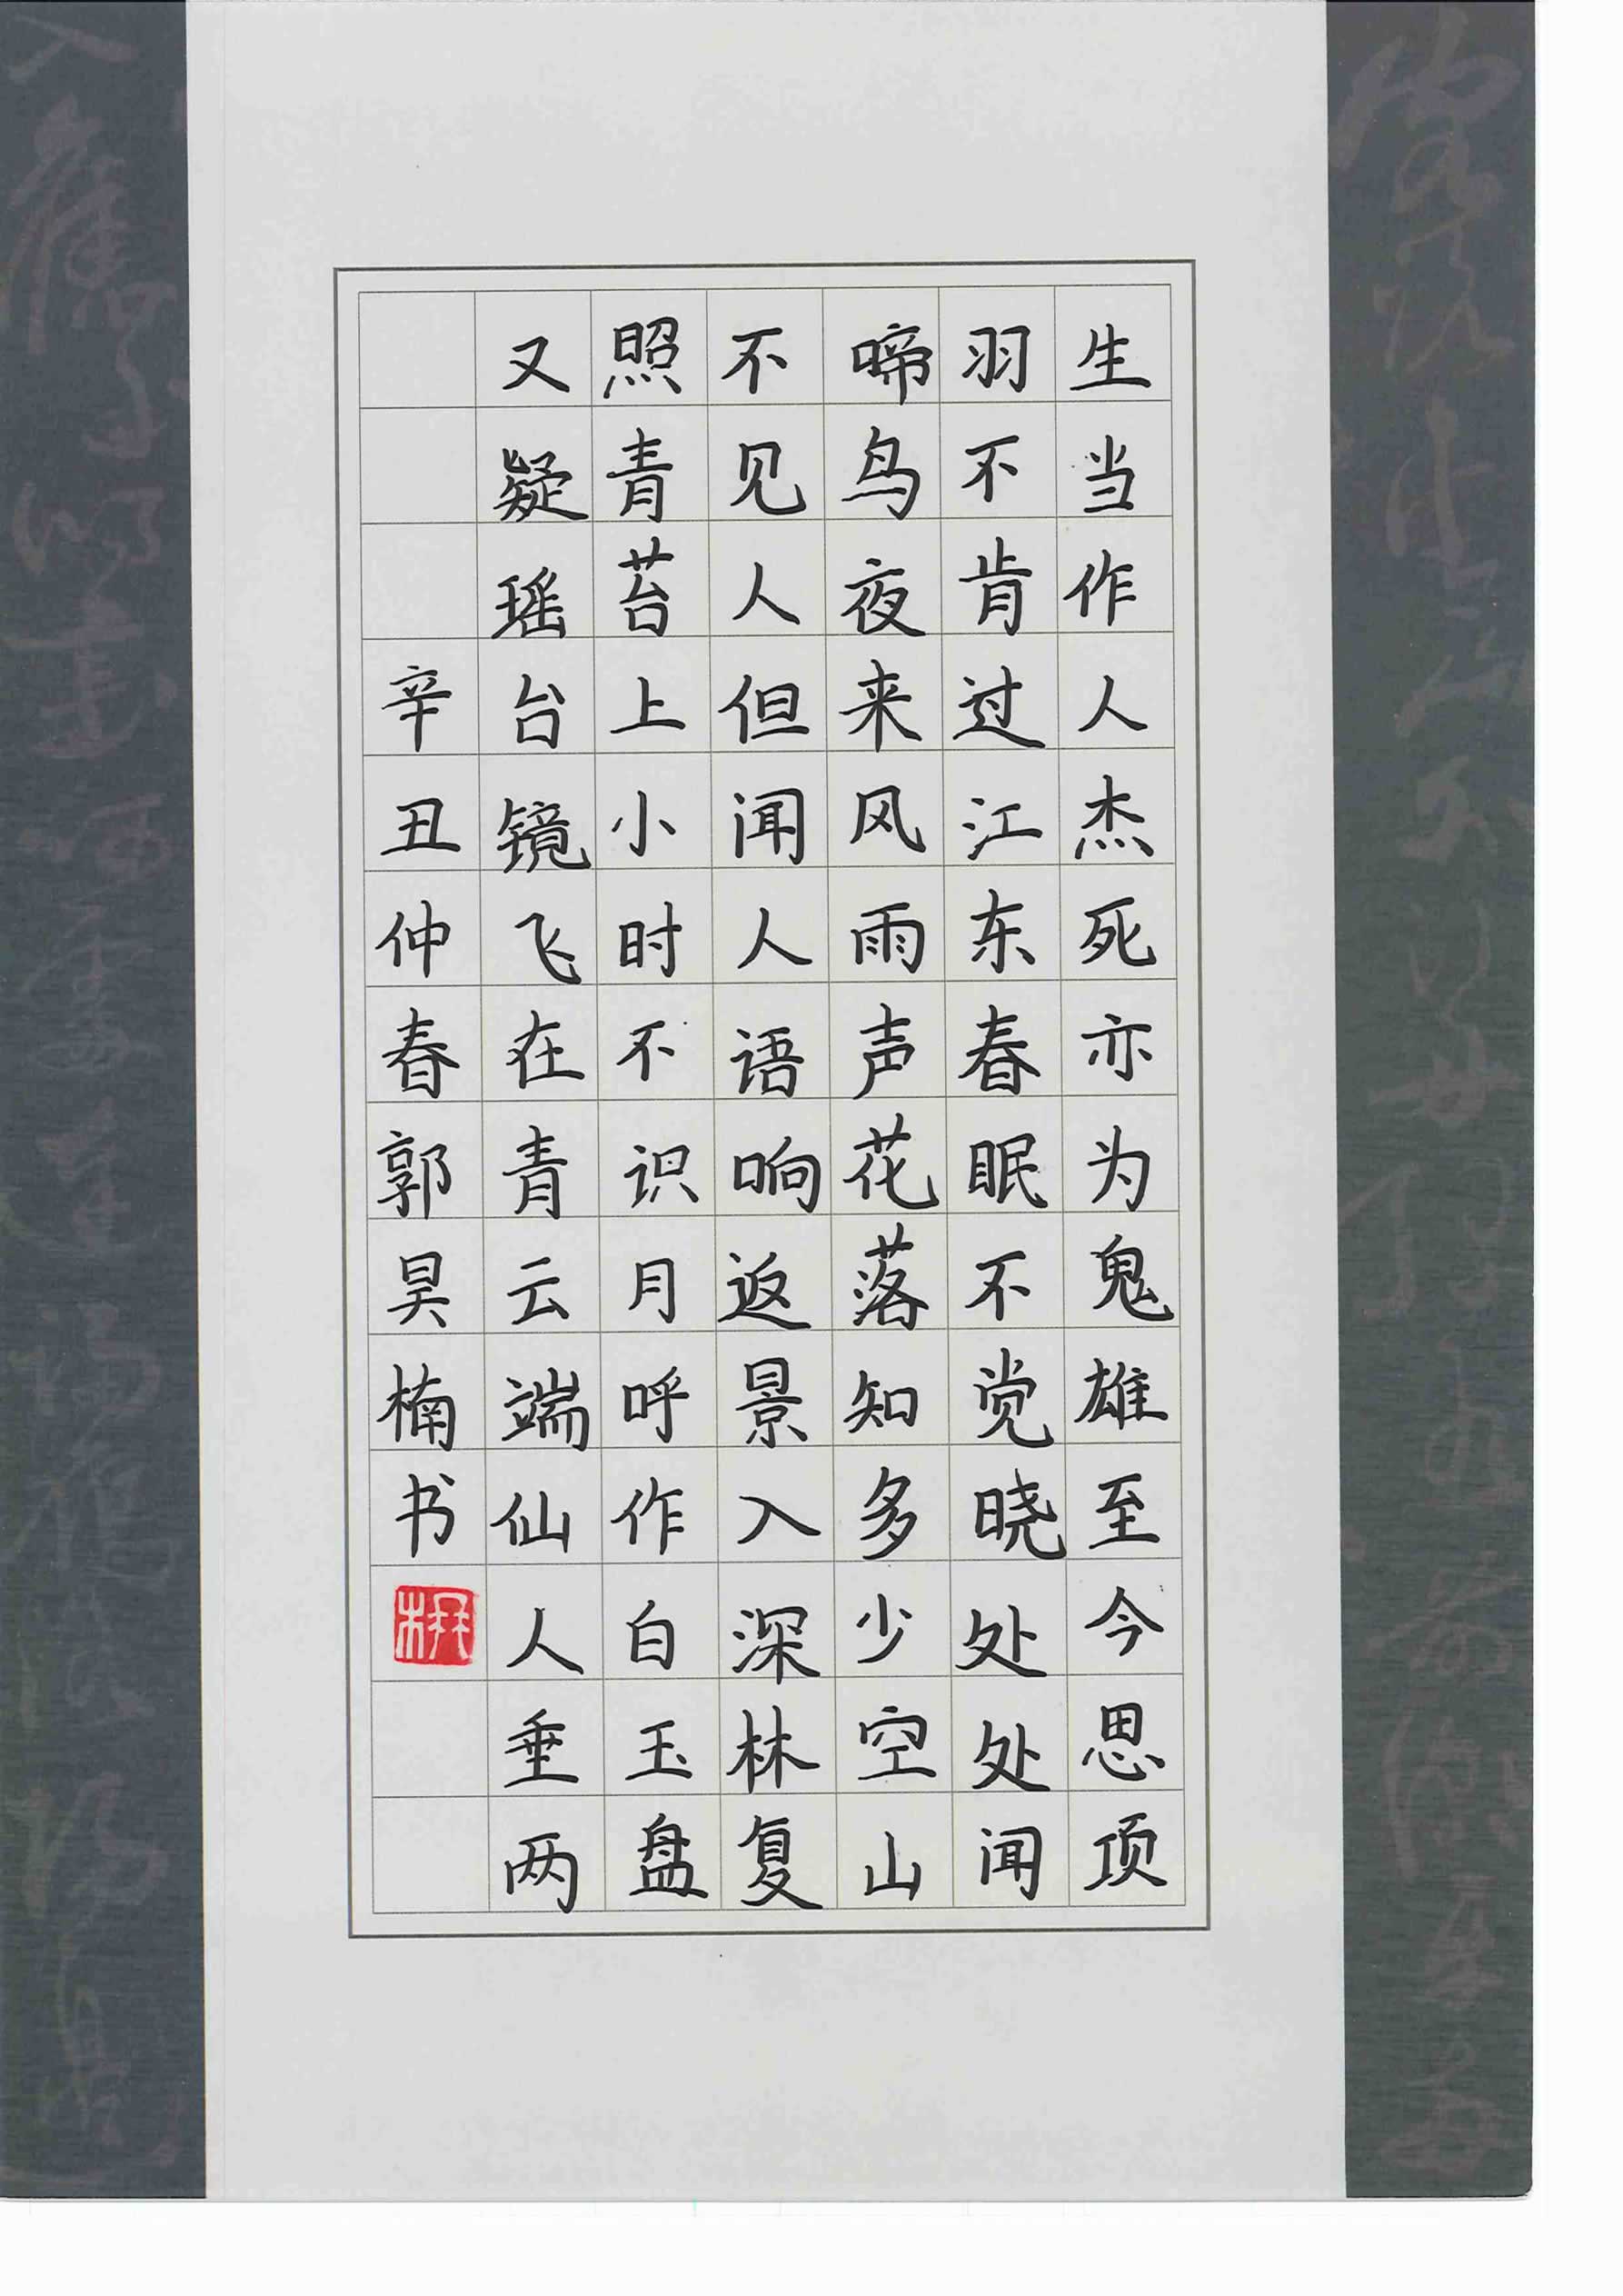 生当作人杰死亦为鬼雄至今思项
羽不肯过江东春眠不觉晓处处闻
啼鸟夜来风雨声花落知多少空山
不见人但闻人语响返景入深林复
照青苔上小时不识月呼作白玉盘
又疑瑶台镜飞在青云端仙人垂两
辛丑仲春郭昊楠书